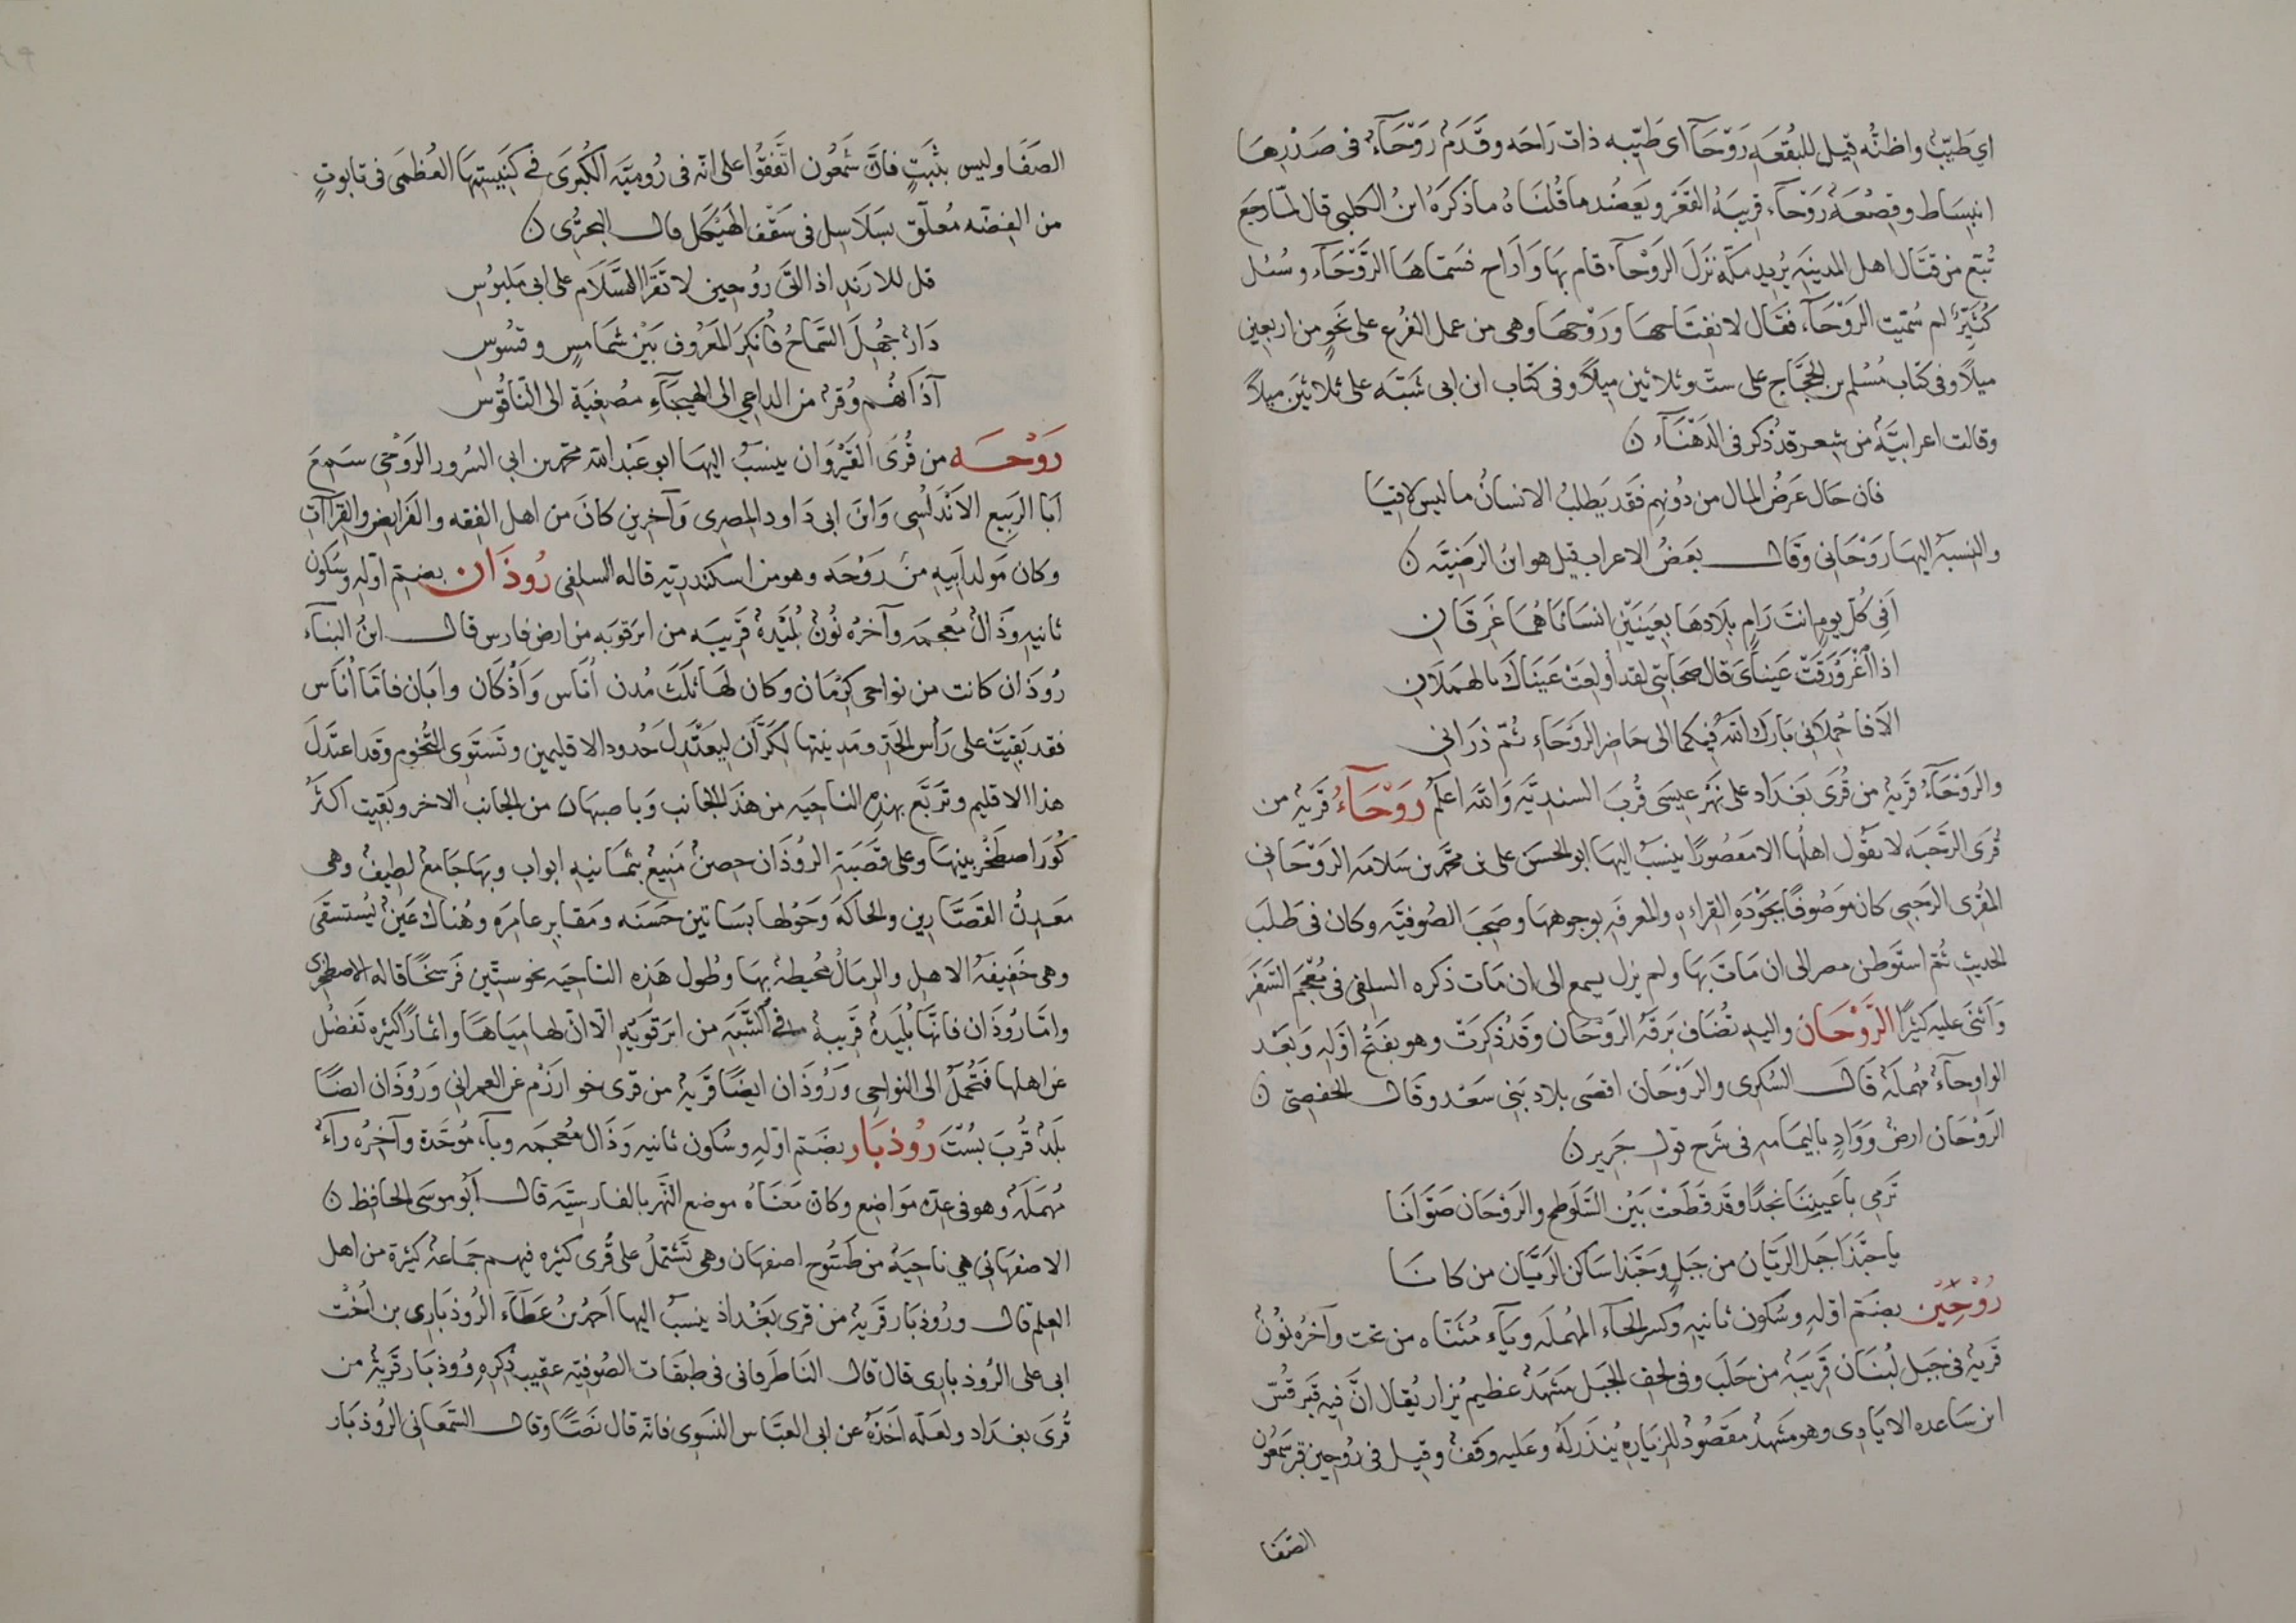 اي طَيّبٌ واظنّه قيل للبُقعَه رَوْحَآ اى طَيّبه ذات رَاحَه وقَدَمٌ رَوْحَآءُ فى صَدْرِهَا
انبسَاط وقصْعَةٌ رَوْحَآء قريبَةُ القَعْر ويَعضُد ما قُلنَاهُ ما ذكَرَهُ ابنُ الكلبى قال لمّا رجَعَ
تُبّع من قتَال اهل المدينَه يُريد مكّه نزَلَ الرَوْحآء فاقام بهَا وَارَاح فسَمّاهَا الرَّوْحَآء وسُئل
كُثَيِّرٌ لم سُمّيت الرَوْحَآء فقَال لانفتَاحهَا وَرَوْحهَا وهى من عمل الفُرْع على نَحوٍ من اربَعين
ميلًا وفى كتاب مُسْلم بن الحجَّاج على ستّ وثلاثين ميلًا وفى كتاب ابن ابى شَيْبَه على ثلاثينَ ميلًا
وقالت اعرابيَّةٌ من شِعر قد ذُكر فى الدَهْنَآء ن
فان حَال عَرضُ المال من دُونهم فقد يَطلبُ الانسانُ ما ليس لاقيَا
والنسبَهُ اليهَا رَوْحَانى وقَال بَعضُ الاعراب قيل هو ابنُ الرَضِيَّه ن
اَفِى كُلّ يوم انتَ رَامٍ بلَادهَا بعَينَيْنِ انسَانَاهُمَا غَرِقَانِ
اذا اغْرَوْرَقَتْ عَينَاىَ قال صحَابتى لقد اُولعَتْ عَينَاكَ بالهمَلَانِ
الَا فاحْملَانى بَارك اللهُ فيكما الى حَاضر الرَوْحَاءِ ثُمّ ذَرانى
والرَوْحَآءُ قريَةٌ من قُرَى بَغدَاد على نَهْر عيسَى قُربَ السنديَّه وَالله اعلَم رَوْحَآءُ قريَهٌ من
قُرَى الرَّحَبَه لا يقوْل اهلُها الا مَقصُورًا ينسَبُ اليهَا ابو الحسَن على بن محمَّد بن سَلامَه الرَوْحَانى
المُقرى الرحَبى كان مَوصُوفًا بجَوْدَهِ القراءهِ والمعرفَهِ بوجوههَا وصَحِبَ الصُوفيَّه وكان فى طَلَب
الحديثِ ثُمّ استَوْطن مصر الى ان مَاتَ بهَا ولم يزل يسمع الى ان مَات ذكره السلفى فى مُعْجَم السَفَر
وَاَثنَى عليه كثيرًا الرَّوْحَان واليه تُضَاف بَرقَهُ الرَوْحَان وقد ذُكرَتْ وهو بفَتْح اوّلهِ وَبَعْد
الواوِ حآءٌ مُهمَلَهٌ قال السُكرى والرَوْحَان اقصَى بلاد بَنى سَعْد وقال الحفصىّ ن
الرَوْحَان ارضٌ وَوَادٍ باليمَامه فى شَرح قول جَرير ن
تَرمِى باَعيننَا نجدًا وقد قطَعَتْ بَيْن السَّلَوطح والرَوْحَان صَوَّانَا
يا حبَّذا جَبل الرَيَّان من جَبَلٍ وحَبَّذا سَاكن الرَيَّان من كانَا
رُوْحِيْن بضَمّ اوّلهِ وسُكون ثانيهِ وكسر الحآء المُهملَه ويآء مُثنّاه من تحت وآخرُه نُونٌ
قريَهٌ فى جَبل لُبْنَان قَريبَهٌ من حَلَب وفى لحف الجبل مَشهدٌ عظيم يُزار يُقال انَّ فيهِ قَبر قُسّ
ابن سَاعده الايَادى وهو مَشهدٌ مقصُودٌ للزيَارهِ يُنذر لَهُ وعَليه وَقفٌ وقيل فى رُوحين قبر شَمعُون
الصَّفَا
الصَفَا وليس بثبَتٍ فانّ شمعُون اتَّفقُوا على انّه فى رُوميَّه الكُبرَى فى كنيستهَا العُظمَى فى تابوتٍ
من الفضّه مُعلّق بسَلَاسِل فى سَقْف الهَيْكل قال البحتُرى ن
قل للارَندِ اذا اتَى رُوحين لا تقرَا السَّلَام على ابى مَلبُوسِ
دَارٌ جُهلَ السَّمَاحُ فاُنكِرَ المَعرُوف بَيْن شمَامسٍ وقسُوسِ
آذَانُهُم وُقرٌ من الداعِى الى الهَيجَآءِ مصغيَة الى النّاقُوس
رَوْحَه من قُرَى القَيْرَوَان ينسبُ اليهَا ابو عَبْد الله محمد بن ابى السُرور الرَوْحى سَمِعَ
اَبَا الرَبيع الاَندَلُسى وَابنَ ابى دَاود المصرى وَآخرين كانَ من اهل الفقه والفَرايضِ والقرَاَات
وكان مَولد اَبيهِ من رَوْحَه وهو من اسكندريّه قاله السلفى رُوذَان بضمّ اوّلهِ وسكون
ثانيهِ وذَالٌ مُعجمَه وآخرُه نُونٌ بُلَيْدَهٌ قَريبَه من ابرقوَيَه من ارض فارس قال ابنُ البنَآء
رُوذَان كانت من نواحى كِرْمَان وكان لهَا ثلَث مُدن اُنَاس وَاَذْكَان واَبَان فامَّا اُنَاس
فقد بَقيَتْ على رَأس الحدّ ومَدينتها لكرَّان ليعتَدِل حُدود الاقليمين وتَستَوى التُخوم وقد اعتدَل
هذا الاقليم وتَربَّع بهذهِ الناحيَه من هذا الجَانب وَباصبهَان من الجانب الاخر وبَقيت اكثَر
كُوَر اصطَخر بينهَا وعلى قَصَبَة الروُذَان حصنٌ مَنيعٌ بثمَانيه ابواب وبهَا جَامعٌ لطيفٌ وهى
مَعدِنُ القصَّارين والحاكَه وَحَوْلها بسَاتين حَسَنه ومَقابر عامرَه وهُناك عَينٌ يُستسقَى
وهى خَفيفَهُ الاهل والرمَالُ محُيطهٌ بهَا وطُول هَذِه الناحيَه نحو ستّين فَرسخًا قاله الاصطَخرى
وامّا رُوذَان فانَّهَا بُلَيدَهٌ قَريبهٌ فى الشَّبَهِ من ابَرقوَيهِ الّا انّ لهَا ميَاهًا واثمارًا كثيره تَفضُل
عن اهلهَا فتُحْمَلُ الى النواحِى وَرُوذَان ايضًا قَريَهٌ من قرى خوارَزْم عن العمرانى وَرُوذَان ايضًا
بَلدٌ قُربَ بُسْتَ رُوذبَار بضَمّ اوّلهِ وسُكون ثانيه وَذَالٌ مُعجمَه وبآء مُوحَّدَة وآخرُه رآءٌ
مُهمَلَهٌ وهو فى عدّهِ مَوَاضِع وكانّ مَعنَاهُ موضع النَّهر بالفارسيَّه قال اَبو موسَى الحافظ ن
الاصْفهَانى هى ناحيَهٌ من طَسُّوج اصفهَان وهى تَشْتَملُ على قُرًى كثيره فيهم جَمَاعَهٌ كثيرة من اهل
العلم قال ورُوذبَار قَريَهٌ من قرى بَغْدَاذ ينسَبُ اليهَا احمَدُ بنُ عَطَآء الرُوذبَارى بن اُخْت
ابى على الرُوذبارى قال قال النَاطرفانى فى طبقات الصُوفيّه عقيبَ ذِكرهِ ورُوذبَار قَريَهٌ من
قُرَى بغدَاد ولعَلّه اَخَذَهُ عن ابى العبَّاس النسَوى فانّه قال نصًّا وقال السَّمعَانى الرُوذبَار